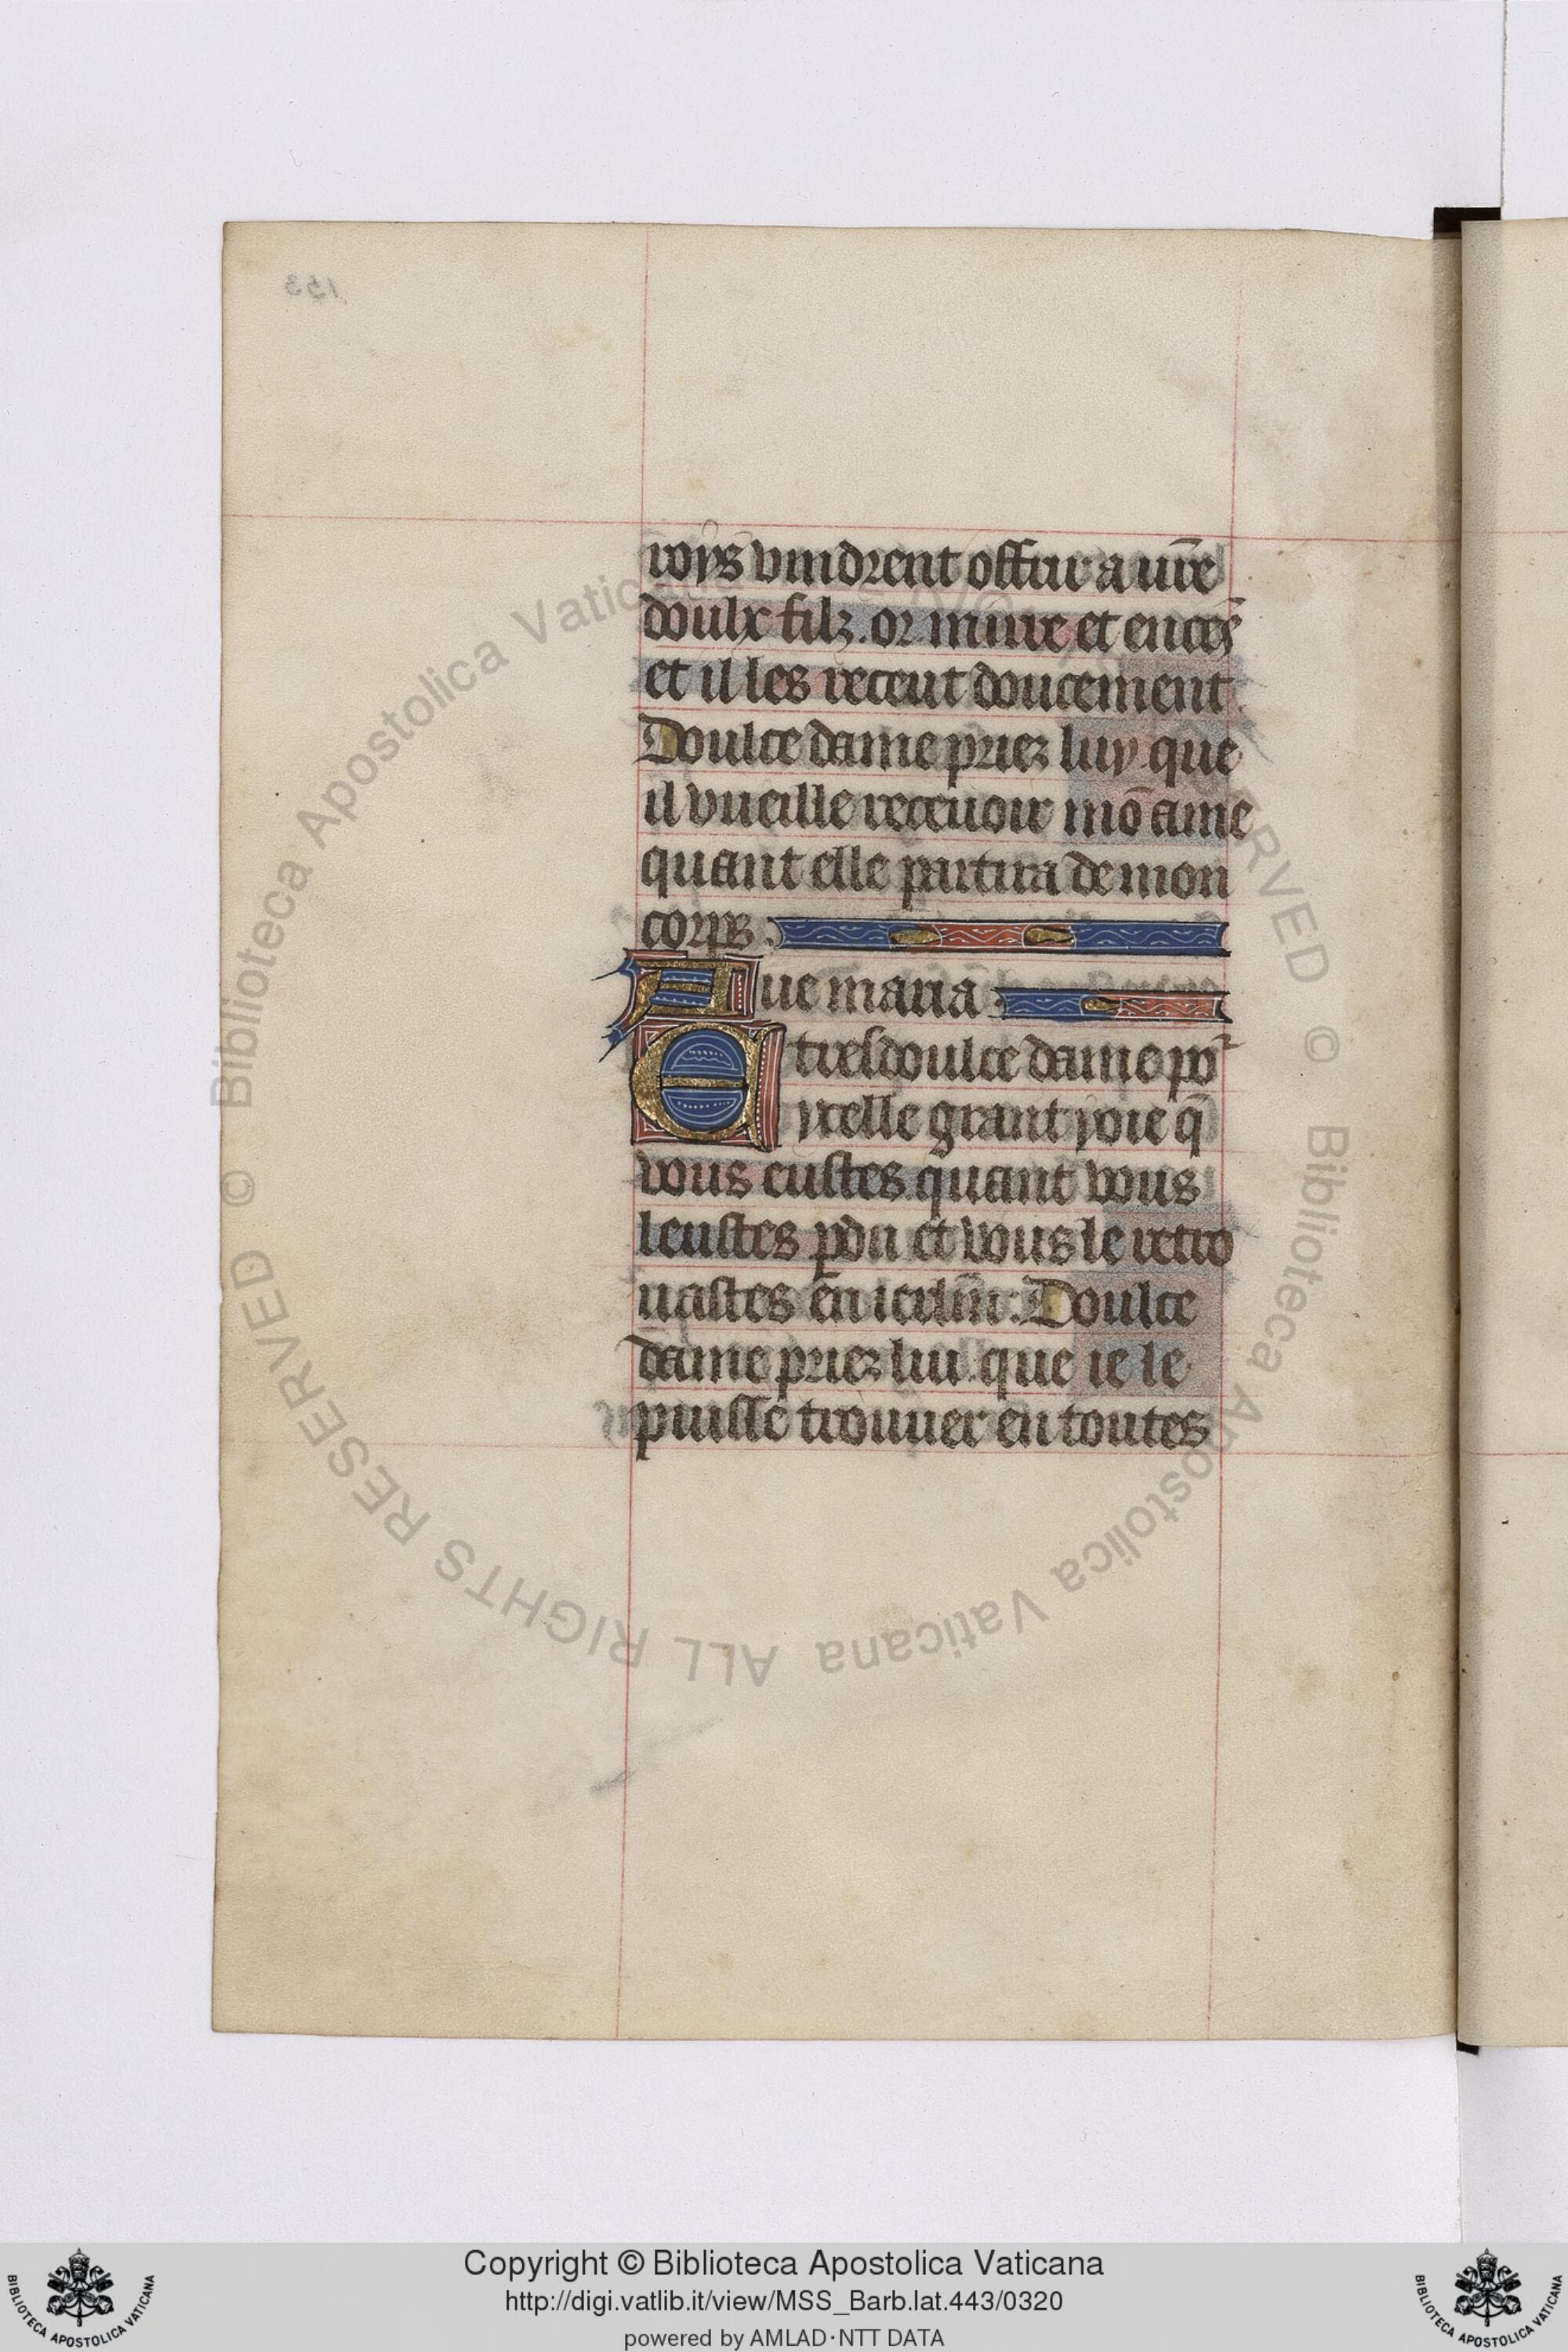 153
roys vindrent offrir a vr̄e
doulx filz. or mirre et encēs
et il les receut doucement.
Doulce dame priez luy que
il vueille receuoir mō ame
quant elle partira de mon
corps.
Aue maria.
E tresdoulce dame por
ycelle grant ioie q̄
vous eustes quant vous
leustes ꝑdu et vous le retro
uastes en ierlm̄. Doulce
dame priez lui que ie le
puisse trouuer en toutes
© Biblioteca Apostolica Vaticana ALL RIGHTS RESERVED
Copyright © Biblioteca Apostolica Vaticana
http://digi.vatlib.it/view/MSS_Barb.lat.443/0320
powered by AMLAD·NTT DATA
BIBLIOTECA APOSTOLICA VATICANA
BIBLIOTECA APOSTOLICA VATICANA